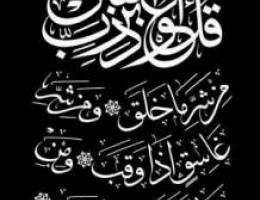 قل أعوذ برب
من شر ما خلق ۞ ومن شر
غاسق إذا وقب ۞ ومن